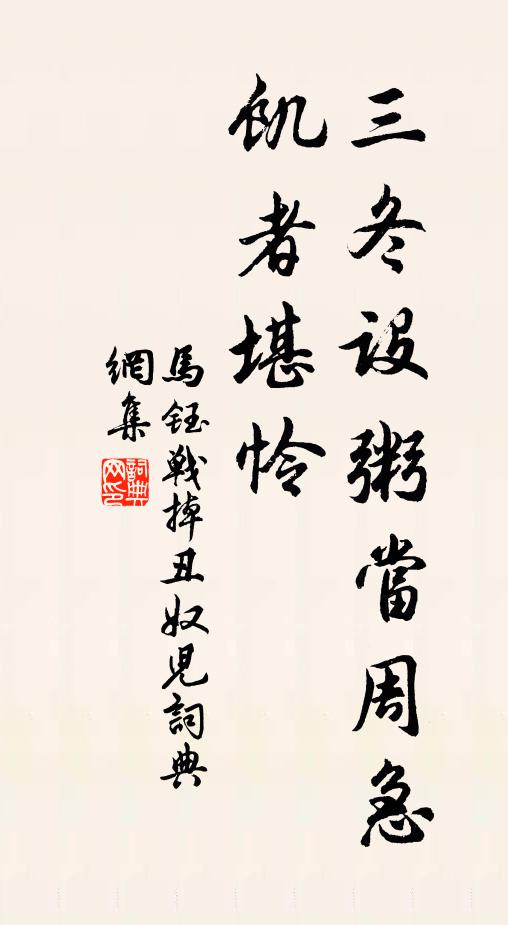 三冬設粥當周急
飢者堪怜
馬鈺戰掉丑奴兒詞典
網集
詞典網印